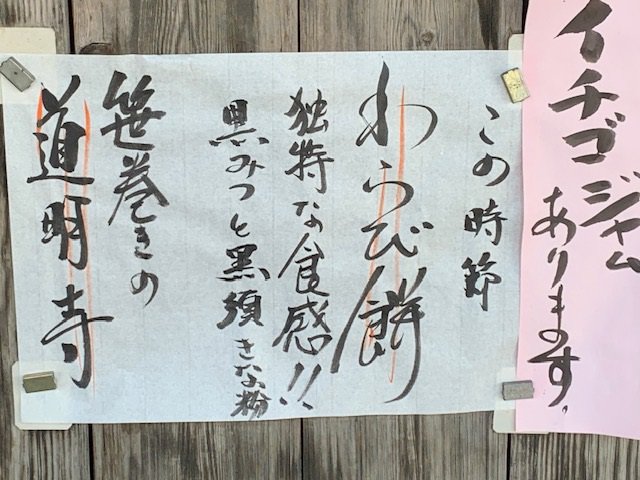 イチゴジャム
あります。
この時節
わらび餅
独特な食感!!
黒みつと黒須きな粉
笹巻きの
道明寺